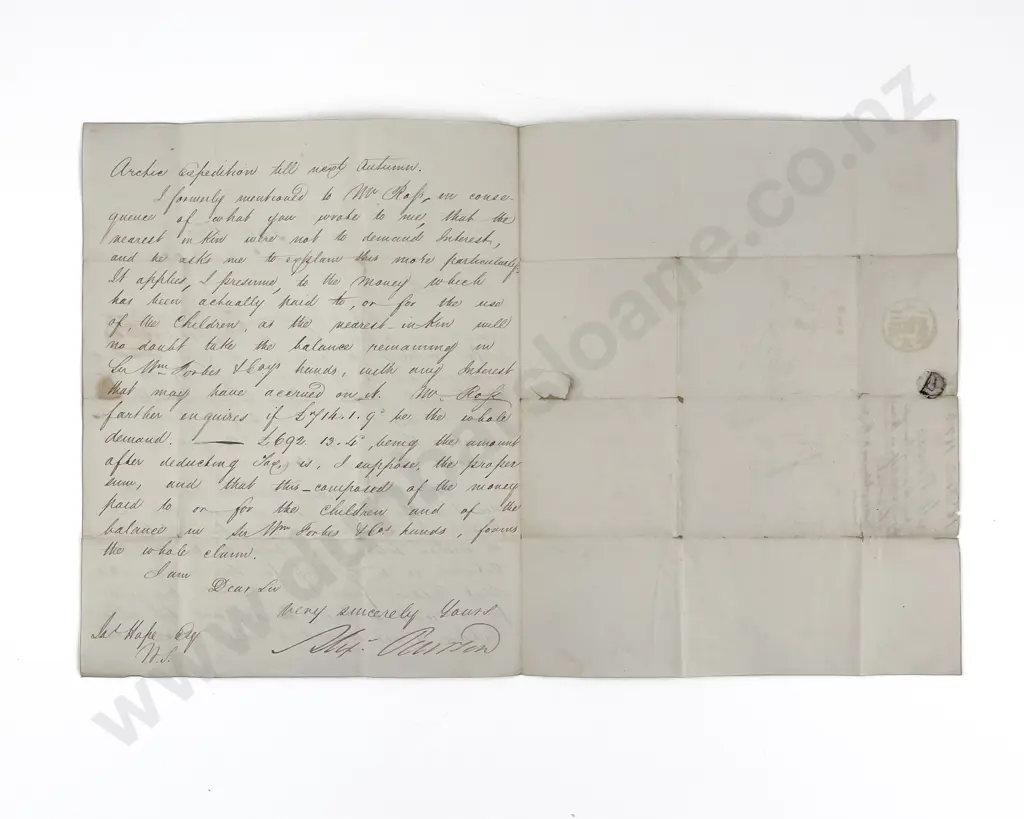 Arctic expedition till next Autumn.
I formerly mentioned to Mr. Ross, in conse-
quence of what you wrote to me, that the
nearest in Kin were not to demand Interest,
and he asks me to explain this more particularly.
It applies, I presume, to the money which
has been actually paid to, or for the use
of, the Children, as the nearest-in-Kin will
no doubt take the balance remaining in
Sir Wm. Forbes & Coys hands, with any Interest
that may have accrued on it. Mr. Ross
farther enquires if £714.1.9d be the whole
demand. — £692.13.4d, being the amount
after deducting Tax, is, I suppose, the proper
sum, and that this - composed of the money
paid to or for the Children and of the
balance in Sir Wm Forbes & Cos hands, forms
the whole claim.
I am
Dear Sir
Very sincerely Yours
Alexr.
Jas Hope Esq
W.S.
www.dunbarsloane.co.nz